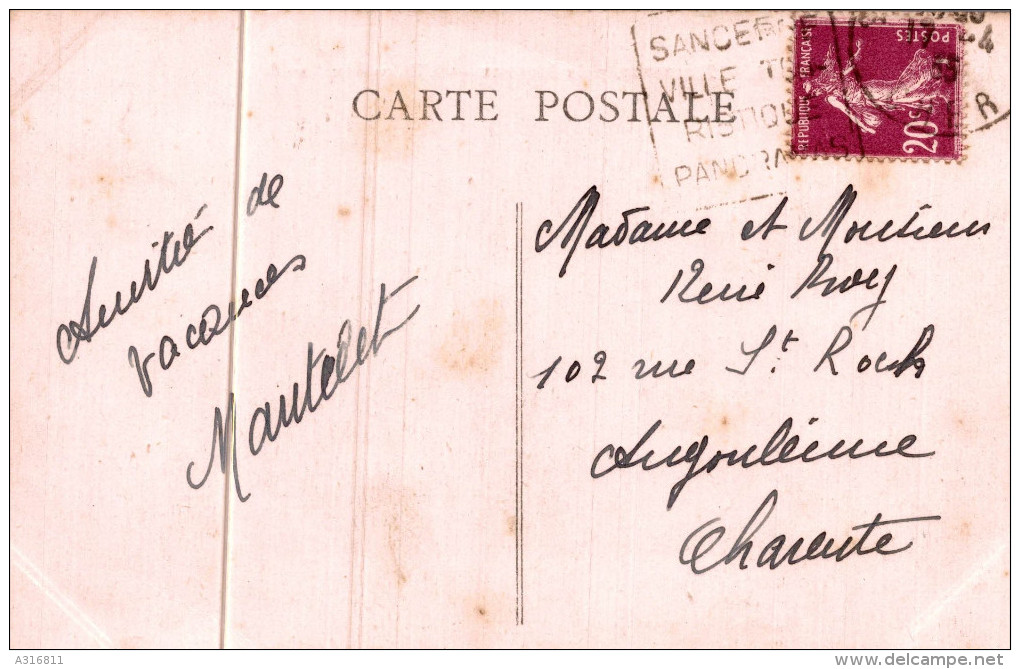 SANCERRE
VILLE TOU
RISTIQUE
PANORAMAS
REPUBLIQUE FRANÇAISE
POSTES
20c
CARTE POSTALE
Amitié de
vacances
Madame et Monsieur
René Roy
102 rue St Roch
Angoulême
Charente
A316811
delcampe.net